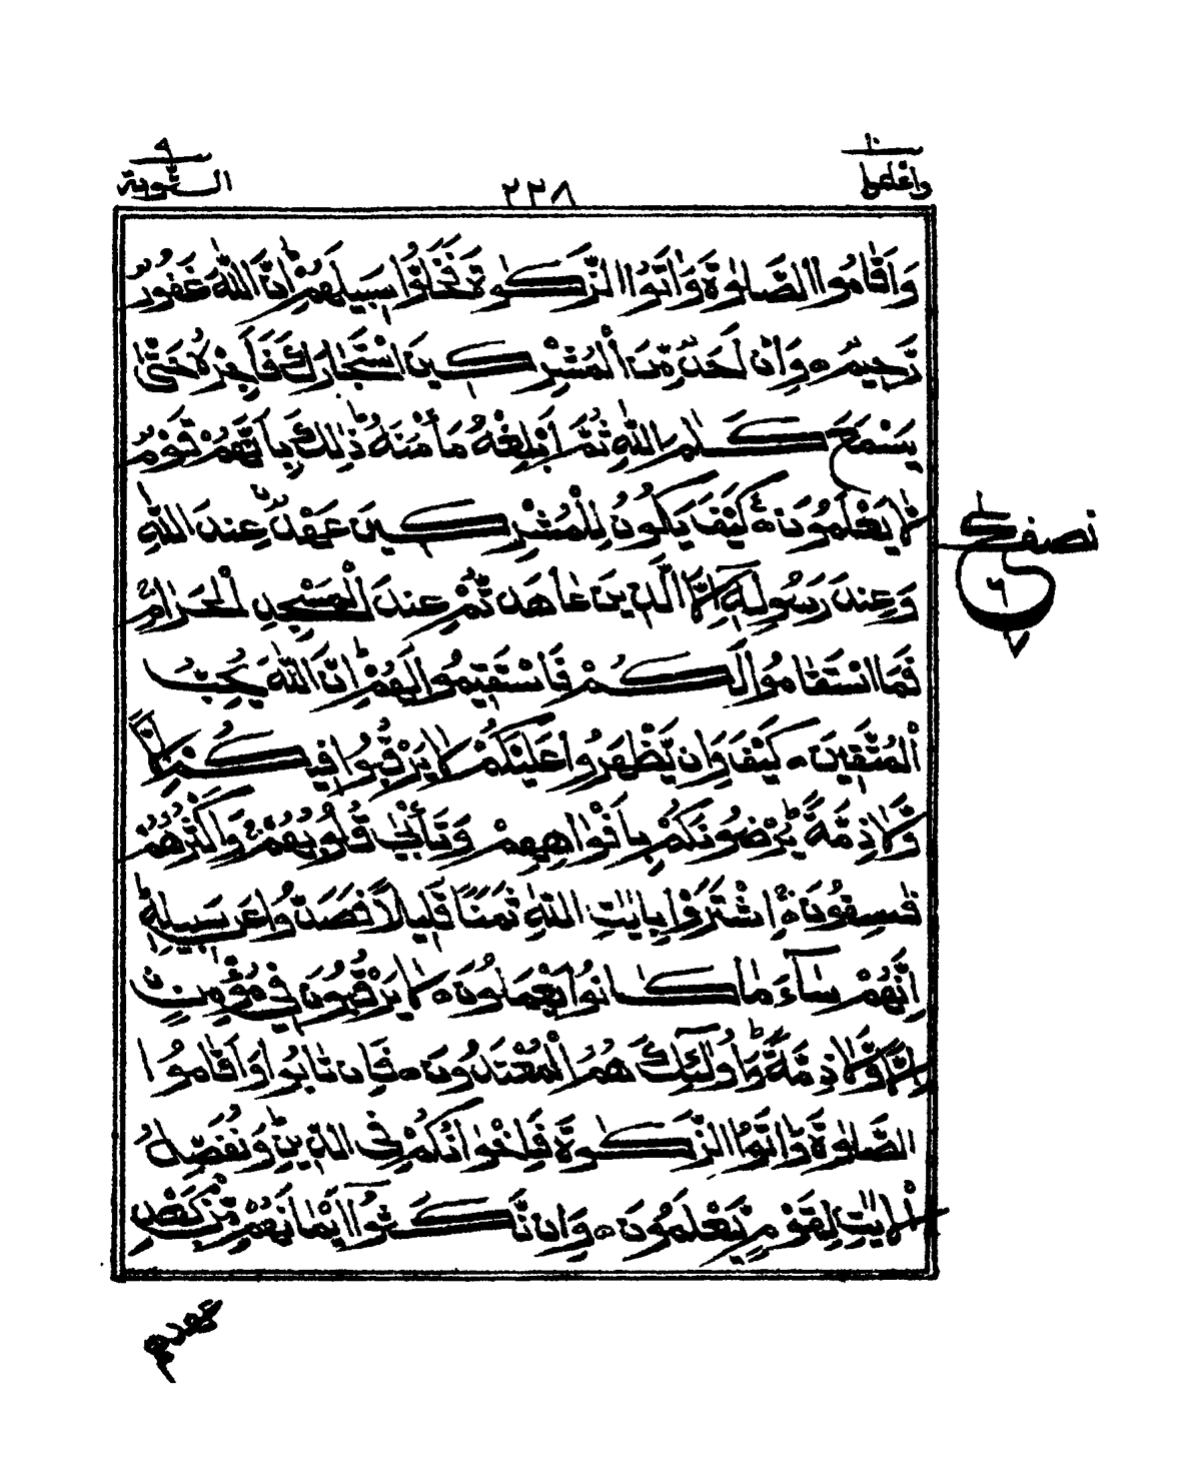 ١٠
واعلموا
٢٢٨
٩
التوبة
وَاَقَامُوا الصَّلٰوةَ وَاٰتَوُا الزَّكٰوةَ فَخَلُّوْا سَبِيْلَهُمْ ؕ اِنَّ اللّٰهَ غَفُوْرٌ
رَّحِيْمٌ ۝ وَاِنْ اَحَدٌ مِّنَ الْمُشْرِكِيْنَ اسْتَجَارَكَ فَاَجِرْهُ حَتّٰى
يَسْمَعَ كَلٰمَ اللّٰهِ ثُمَّ اَبْلِغْهُ مَاْمَنَهٗ ؕ ذٰلِكَ بِاَنَّهُمْ قَوْمٌ
لَّا يَعْلَمُوْنَ ۝ كَيْفَ يَكُوْنُ لِلْمُشْرِكِيْنَ عَهْدٌ عِنْدَ اللّٰهِ
وَعِنْدَ رَسُوْلِهٖٓ اِلَّا الَّذِيْنَ عَاهَدْتُّمْ عِنْدَ الْمَسْجِدِ الْحَرَامِ ۚ
فَمَا اسْتَقَامُوْا لَكُمْ فَاسْتَقِيْمُوْا لَهُمْ ؕ اِنَّ اللّٰهَ يُحِبُّ
الْمُتَّقِيْنَ ۝ كَيْفَ وَاِنْ يَّظْهَرُوْا عَلَيْكُمْ لَا يَرْقُبُوْا فِيْكُمْ اِلًّا
وَّلَا ذِمَّةً ؕ يُرْضُوْنَكُمْ بِاَفْوَاهِهِمْ وَتَاْبٰى قُلُوْبُهُمْ ۚ وَاَكْثَرُهُمْ
فٰسِقُوْنَ ۝ اِشْتَرَوْا بِاٰيٰتِ اللّٰهِ ثَمَنًا قَلِيْلًا فَصَدُّوْا عَنْ سَبِيْلِهٖ ؕ
اِنَّهُمْ سَآءَ مَا كَانُوْا يَعْمَلُوْنَ ۝ لَا يَرْقُبُوْنَ فِيْ مُؤْمِنٍ
اِلًّا وَّلَا ذِمَّةً ؕ وَاُولٰٓئِكَ هُمُ الْمُعْتَدُوْنَ ۝ فَاِنْ تَابُوْا وَاَقَامُوا
الصَّلٰوةَ وَاٰتَوُا الزَّكٰوةَ فَاِخْوَانُكُمْ فِى الدِّيْنِ ؕ وَنُفَصِّلُ
الْاٰيٰتِ لِقَوْمٍ يَّعْلَمُوْنَ ۝ وَاِنْ نَّكَثُوْٓا اَيْمَانَهُمْ مِّنْۢ بَعْدِ
نصف
ع
٦
٧
عهدهم